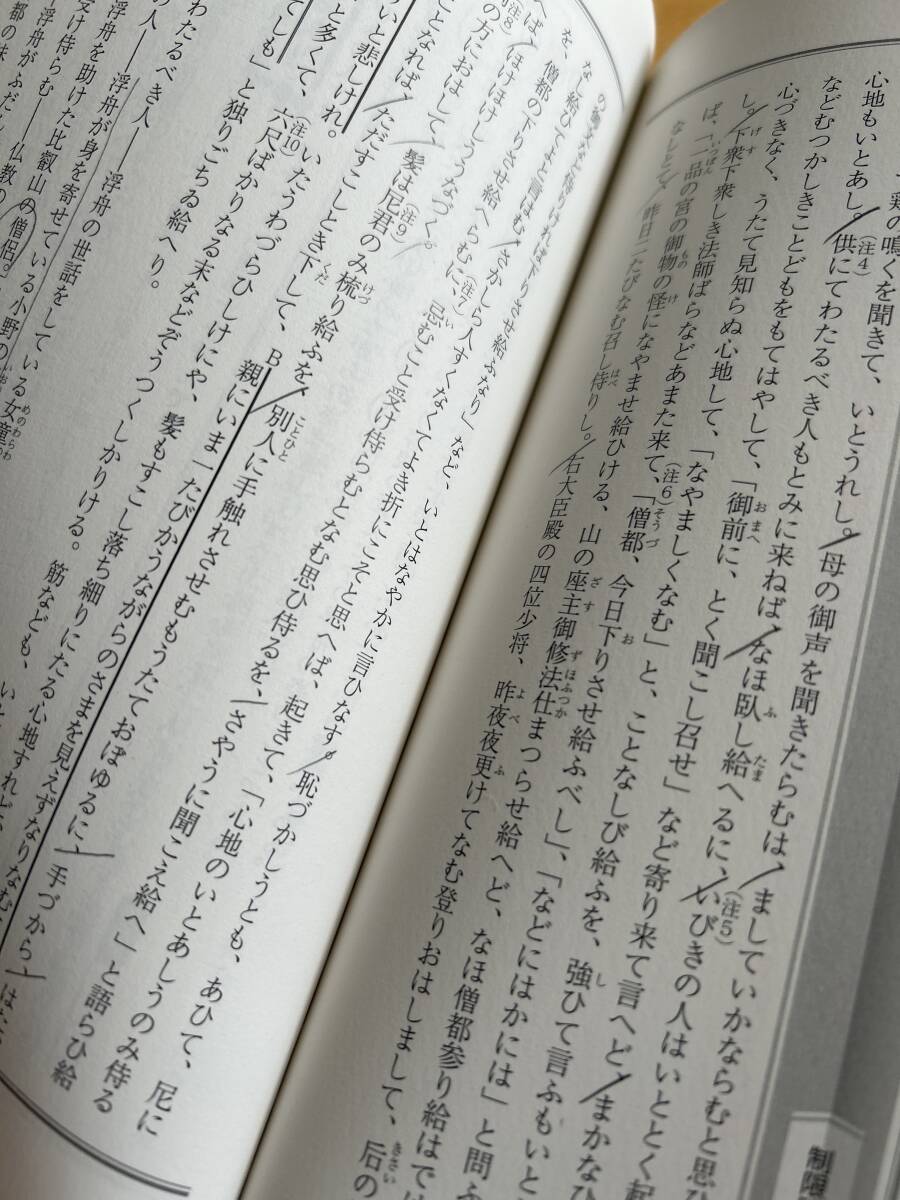 鶏の鳴くを聞きて、いとうれし。母の御声を聞きたらむは、ましていかならむと思ひ
心地もいとあし。(注4)供にてわたるべき人もとみに来ねば、なほ臥し給へるに、(注5)いびきの人はいととく起
などむつかしきことどもをもてはやして、「御前に、とく聞こし召せ」など寄り来て言へど、まかなひ
心づきなく、うたて見知らぬ心地して、「なやましくなむ」と、ことなしび給ふを、強ひて言ふもいと
し。下衆下衆しき法師ばらなどあまた来て、(注6)「僧都、今日下りさせ給ふべし」、「などにはかには」と問ふ
ば、「一品の宮の御物の怪になやませ給ひける、山の座主御修法仕まつらせ給へど、なほ僧都参り給はでは
なしとて、昨日二たびなむ召し侍りし。右大臣殿の四位少将、昨夜夜更けてなむ登りおはしまして、后の
侍りければ下りさせ給ふなり」など、いとはなやかに言ひなす。恥づかしうとも、あひて、尼に
なし給ひてよと言はむ、さかしら人すくなくてよき折にこそと思へば、起きて、「心地のいとあしうのみ侍る
を、僧都の下りさせ給へらむに、(注7)忌むこと受け侍らむとなむ思ひ侍るを、さやうに聞こえ給へ」と語らひ給
へば、(注8)ほけほけしううなづく。
の方におはして、髪は(注9)尼君のみ梳り給ふを、別人に手触れさせむもうたておぼゆるに、手づから、
ことなれば、ただすこしとき下して、B親にいま一たびかうながらのさまを見えずなりなむ
のいと悲しけれ。(注10)いたうわづらひしけにや、髪もすこし落ち細りにたる心地すれど、
と多くて、六尺ばかりなる末などぞうつくしかりける。筋なども、
てしも」と独りごちゐ給へり。
わたるべき人――浮舟の世話をしている
の人――浮舟が身を寄せている小野の
浮舟を助けた比叡山の僧侶。
受け侍らむ――仏教の
女童
制限